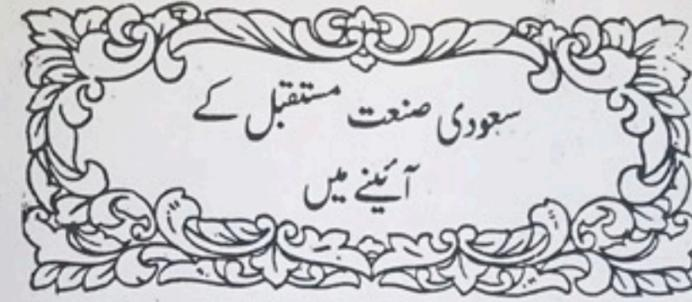 سعودی صنعت مستقبل کے
آئینے میں